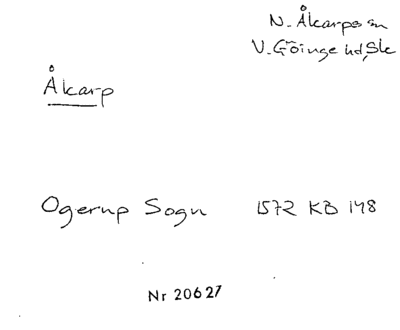 N. Åkarps sn
V. Göinge hd, Sk
Åkarp
Ogerup Sogn 1572 KB 148
Nr 20627